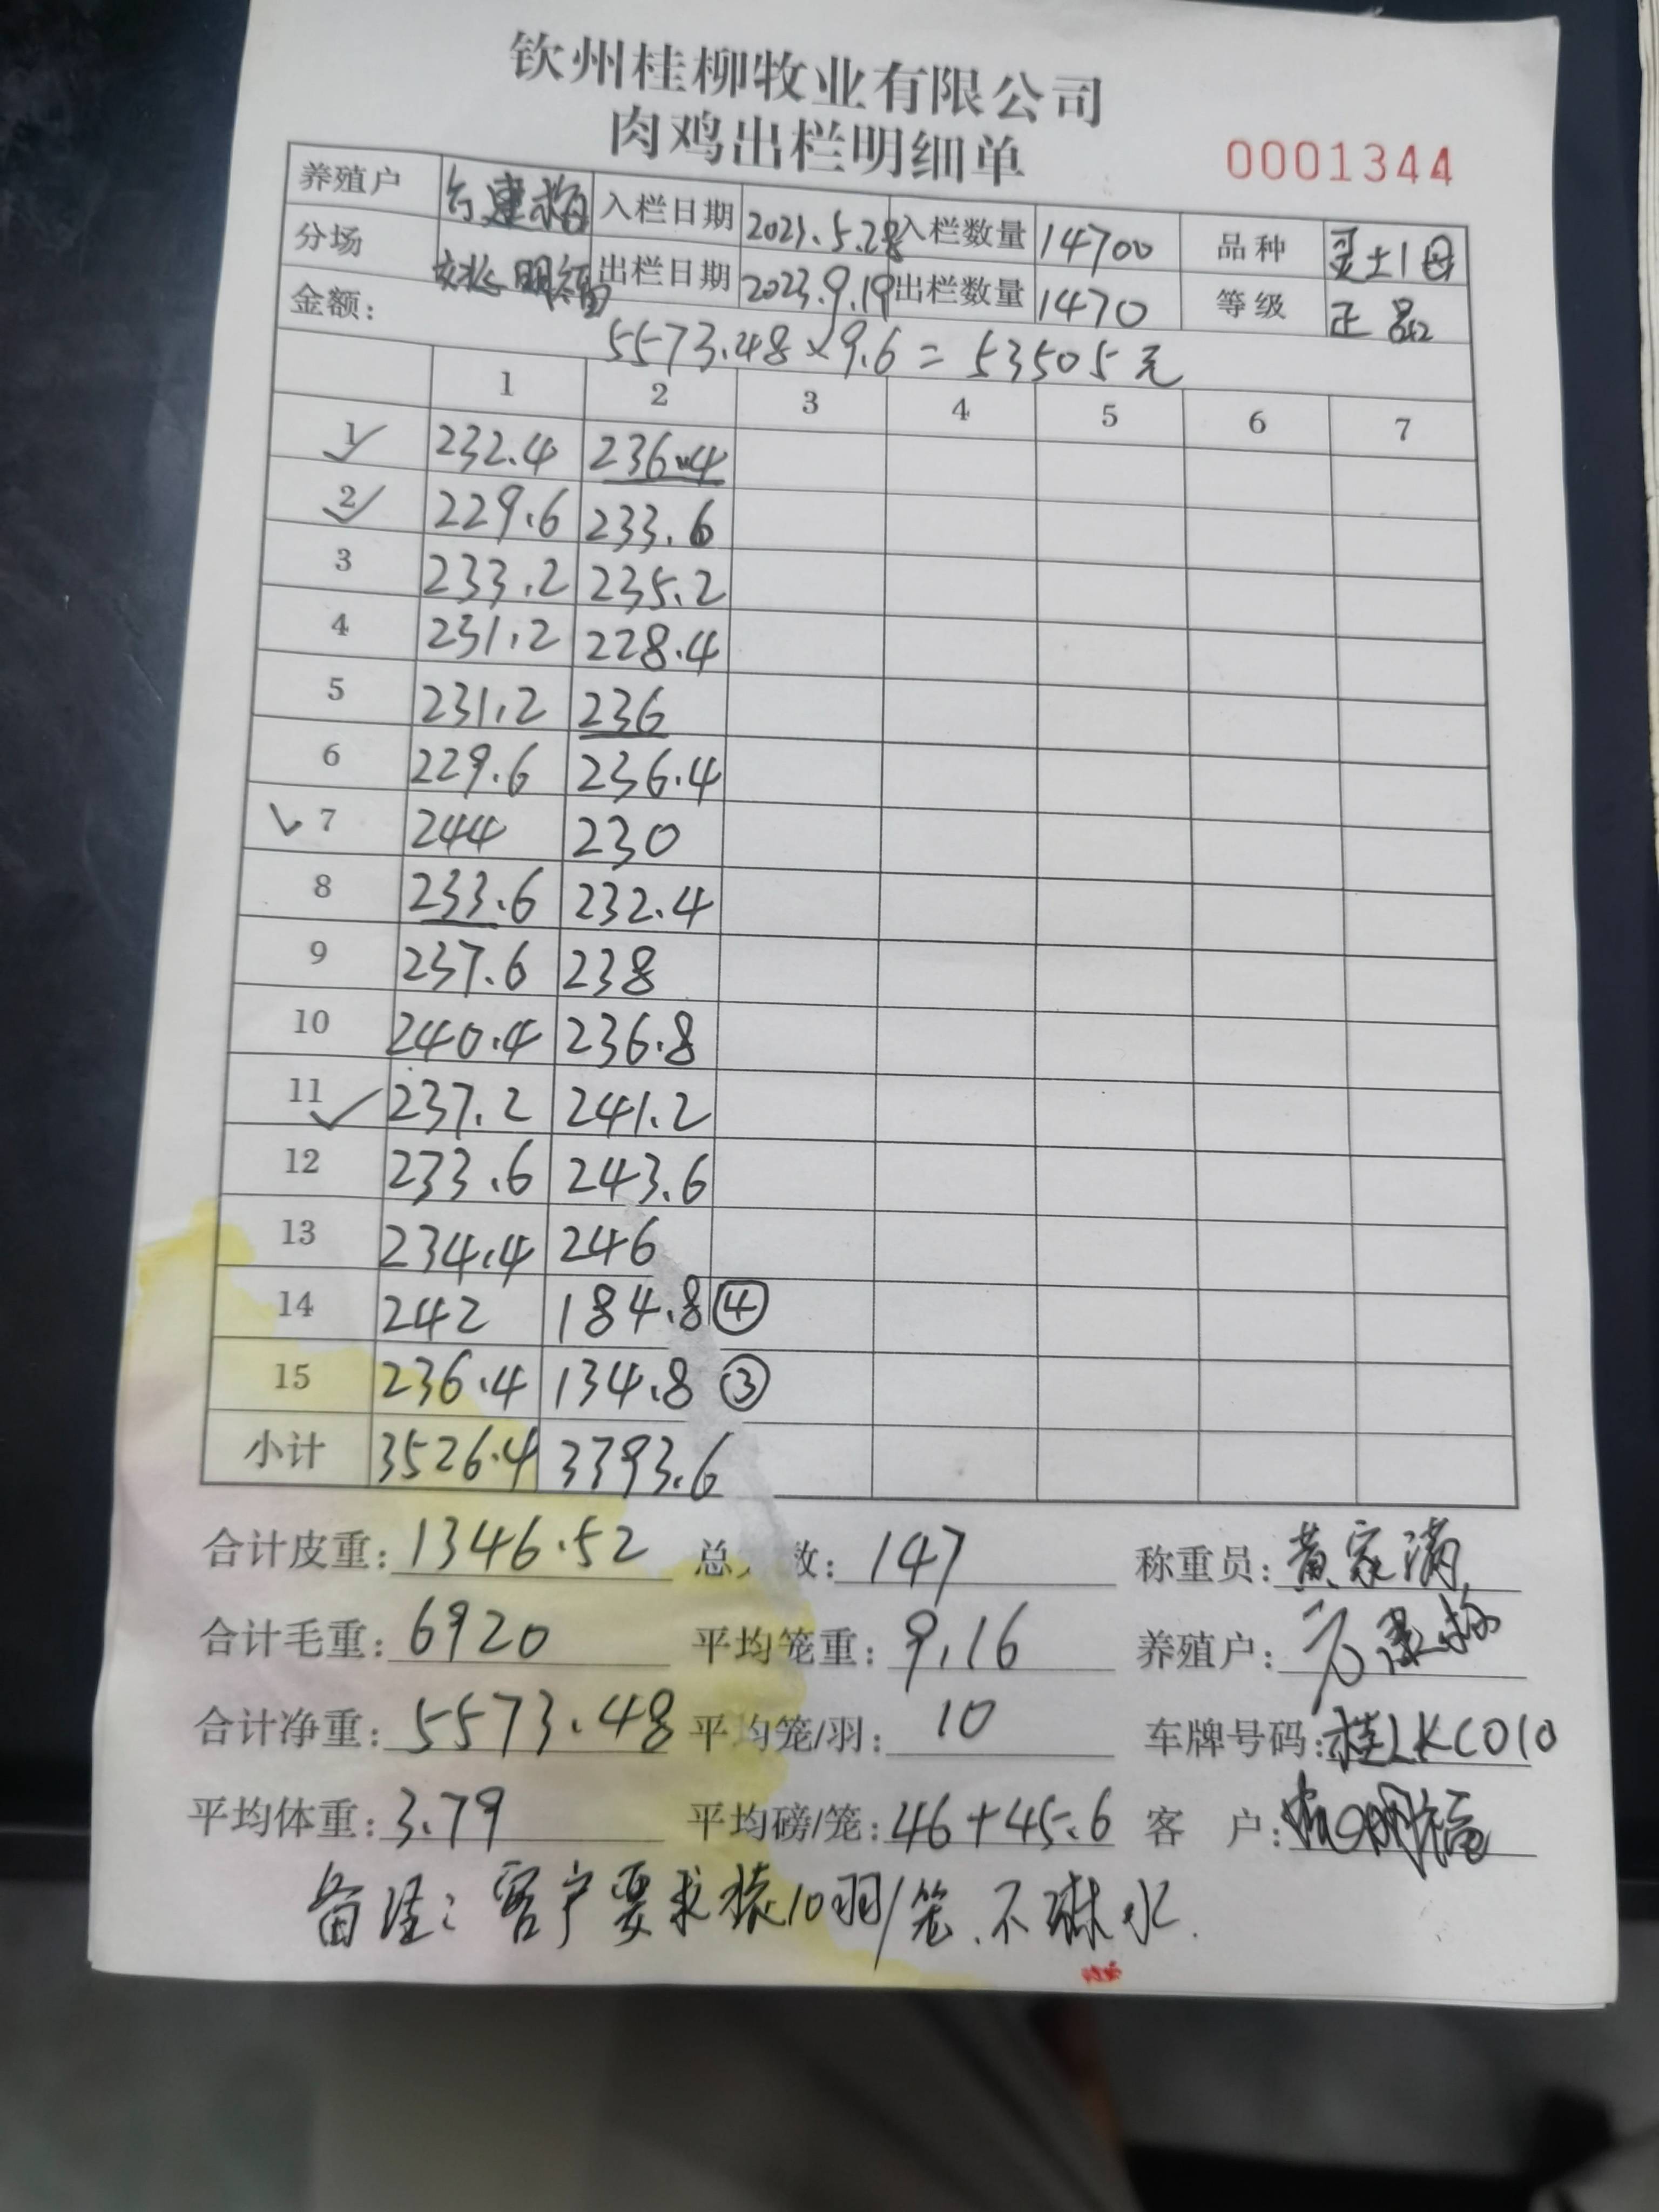 钦州桂柳牧业有限公司
肉鸡出栏明细单
0001344
养殖户 建梅 入栏日期 2023.5.28 入栏数量 14700 品种 灵土1母
分场 明福 出栏日期 2023.9.19 出栏数量 1470 等级 正品
金额: 5573.48×9.6=53505元
1 2 3 4 5 6 7
1 232.4 236.4
2 229.6 233.6
3 233.2 235.2
4 231.2 228.4
5 231.2 236
6 229.6 236.4
7 244 230
8 233.6 232.4
9 237.6 238
10 240.4 236.8
11 237.2 241.2
12 233.6 243.6
13 234.4 246
14 242 184.8 ④
15 236.4 134.8 ③
小计 3526.4 3393.6
合计皮重: 1346.52 总 数: 147 称重员: 黄家满
合计毛重: 6920 平均笼重: 9.16 养殖户: 建梅
合计净重: 5573.48 平均笼/羽: 10 车牌号码: 桂LKC010
平均体重: 3.79 平均磅/笼: 46+45.6 客 户: 明福
备注: 客户要求装10羽/笼、不淋水.